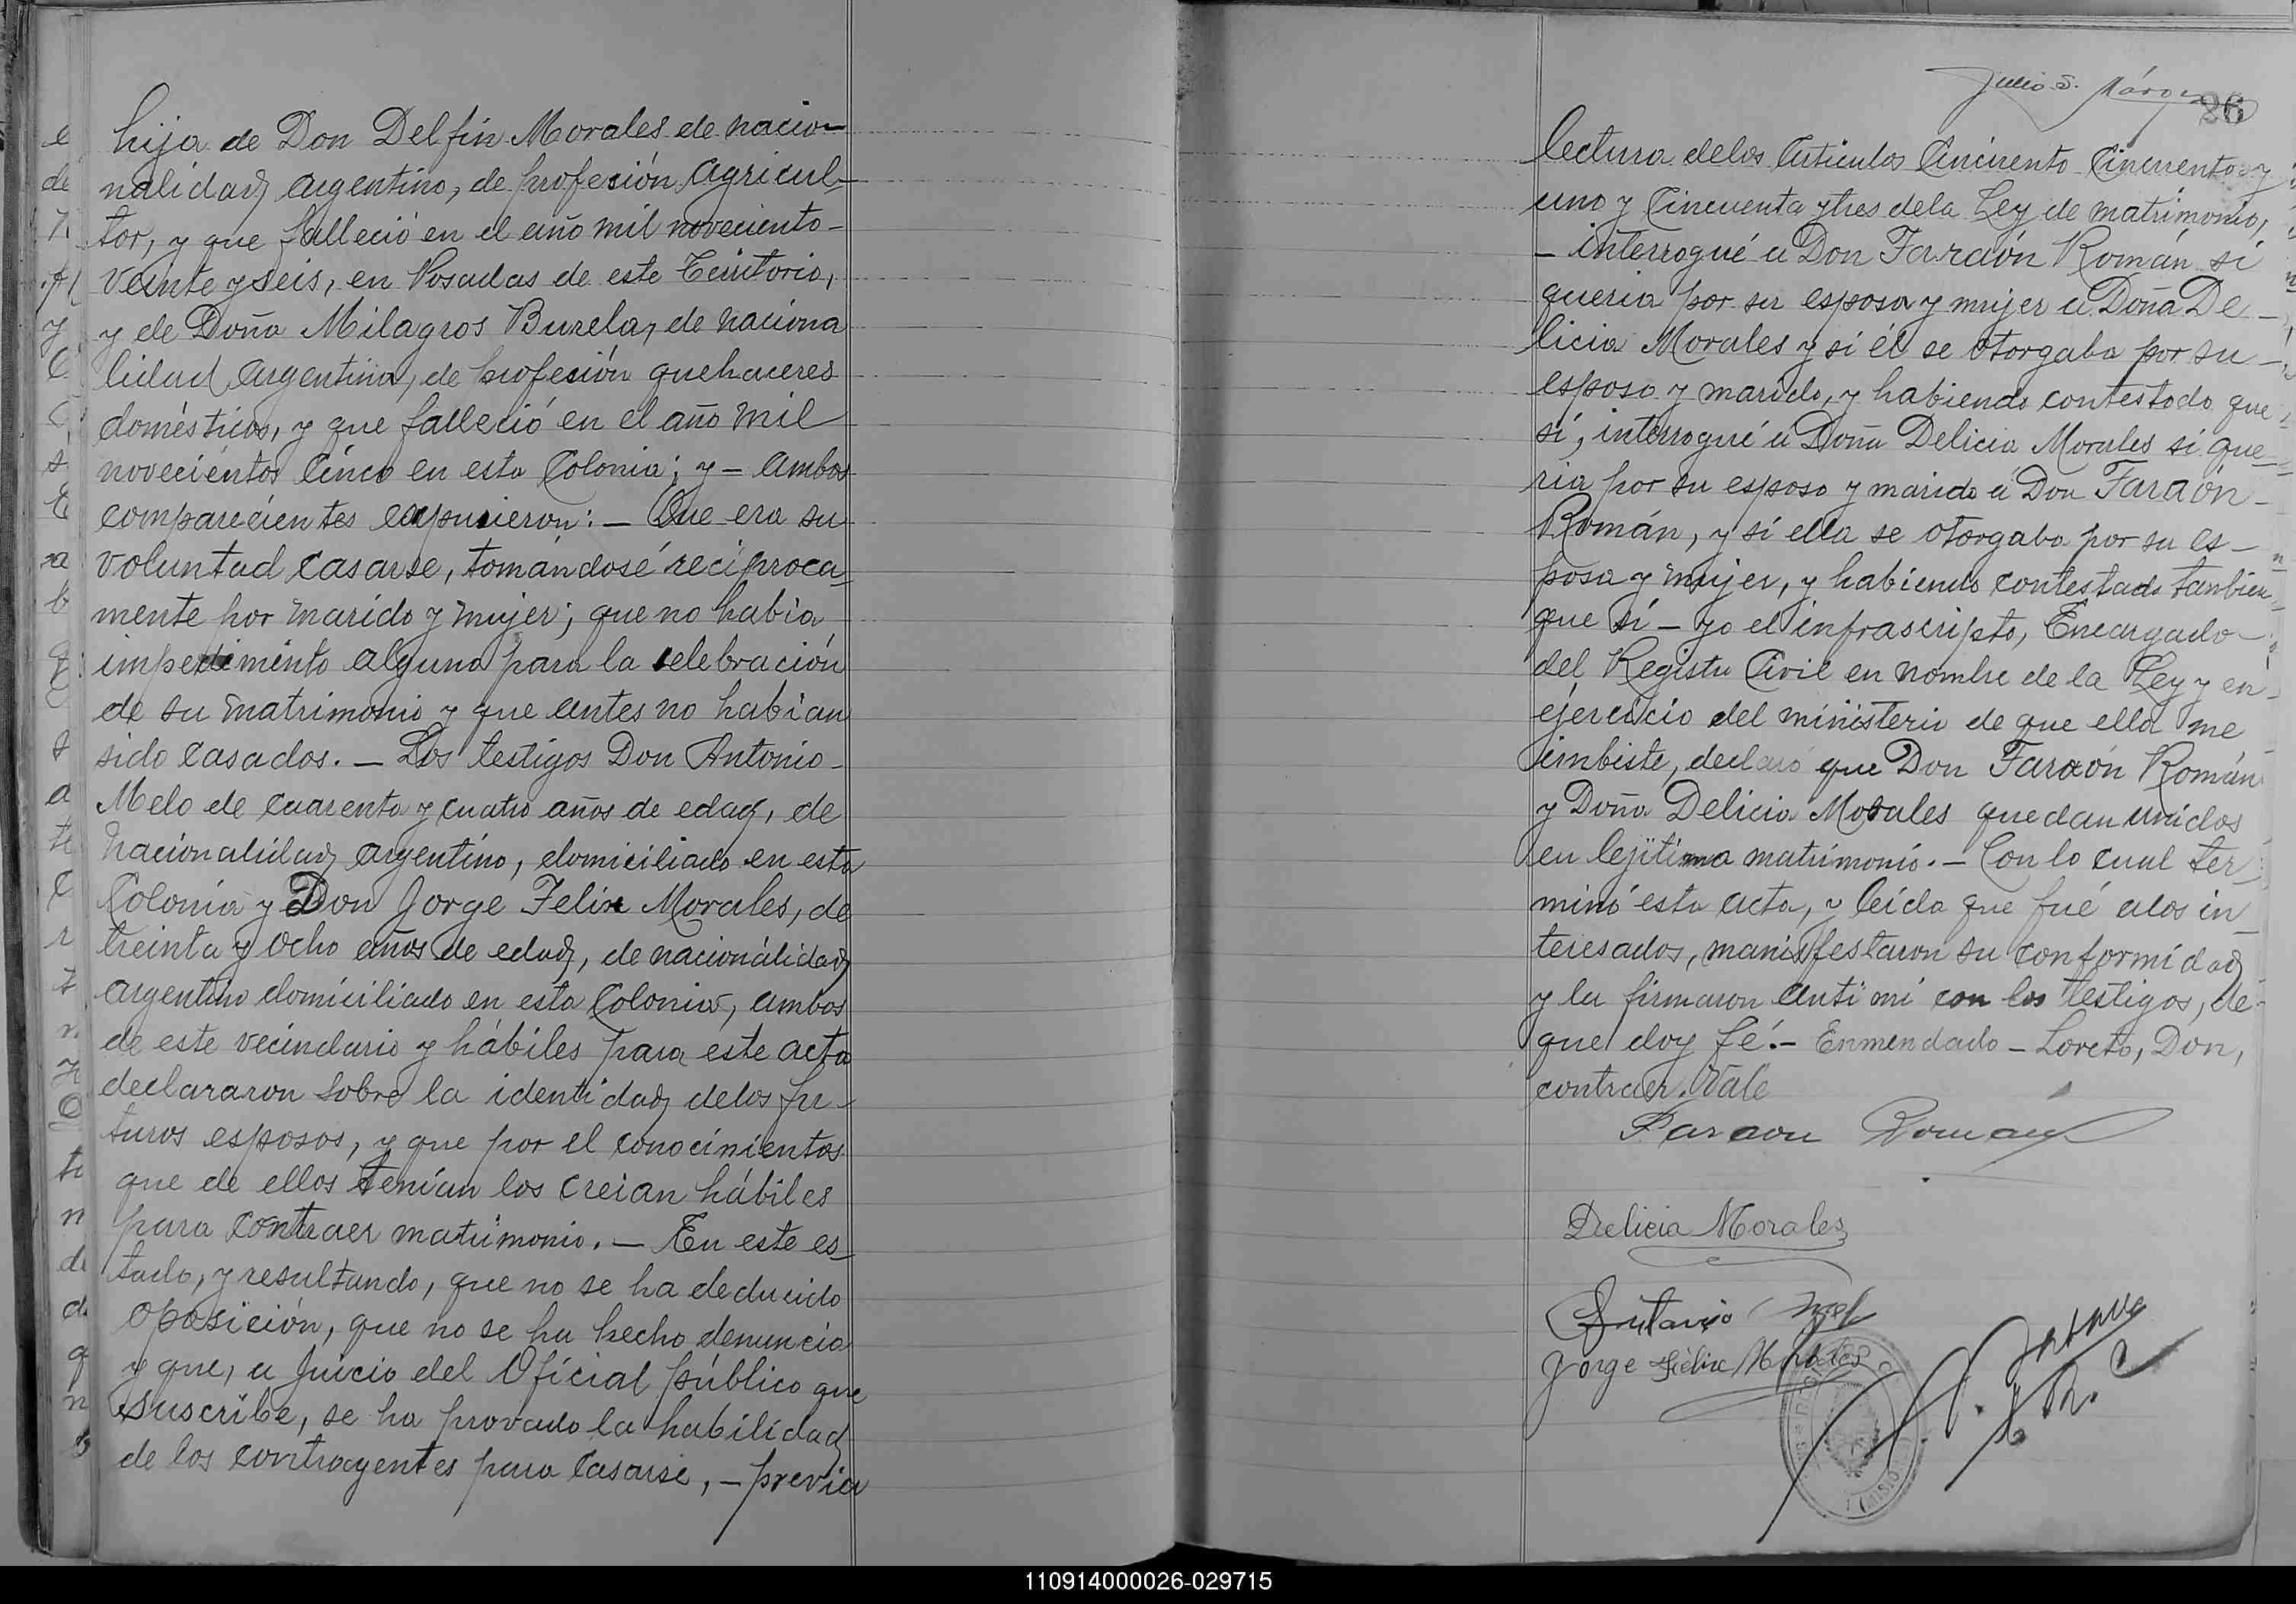 hija de Don Delfín Morales de nacio-
nalidad argentino, de profesión agricul-
tor, y que falleció en el año mil noveciento-
veinte y seis, en Posadas de este Territorio,
y de Doña Milagros Burela, de naciona
lidad argentina, de profesión quehaceres
domésticos, y que falleció en el año mil
novecientos cinco en esta Colonia; y - ambos
comparecientes expusieron: - Que era su
voluntad casarse, tomándosé reciproca-
mente por marido y mujer; que no habia
impedimento alguno para la celebración
de su matrimonio y que antes no habian
sido casados. - Los testigos Don Antonio-
Melo de cuarenta y cuatro años de edad, de
nacionalidad argentino, domiciliado en esta
Colonia y Don Jorge Felix Morales, de
treinta y ocho años de edad, de nacionalidad
argentino domiciliado en esta Colonia, ambos
de este vecindario y hábiles para este acto
declararon sobre la identidad delos fu-
turos esposos, y que por el conocimientos
que de ellos tenían los creian hábiles
para contraer matrimonio. - En este es-
tado, y resultando, que no se ha deducido
oposición, que no se ha hecho denuncia
y que, a juicio del Oficial público que
suscribe, se ha provado la habilidad
de los contrayentes para casarse, - previa
Julio S.
26
lectura delos Articulos Cincuenta Cincuenta y
uno y Cincuenta ytres dela Ley de matrimonio,
- interrogué a Don Faraón Román si
queria por su esposa y mujer a Doña De-
licia Morales y si él se otorgaba por su-
esposo y marido, y habiendo contestado que
sí, interrogué a Doña Delicia Morales si que-
ria por su esposo y marido á Don Faraón-
Román, y si ella se otorgaba por su es-
posa y mujer, y habiendo contestado tanbien
que sí - yo el infrascripto, Encargado-
del Registro Civil en nombre de la Ley y en-
ejercicio del ministerio de que ella me
imbiste, declaró que Don Faraón Román
y Doña Delicia Morales quedan unidos
en lejitimo matrimonio. - Con lo cual ter-
minó esta acta, y leída que fué alos in-
teresados, manisfestaron su conformidad
y la firmaron anti mi con los testigos, de-
que doy fé. - Enmendado - Loreto, Don,
contraer. Vale
Faraon Román
Delicia Morales
Antonio Melo
Jorge Félix Morales
110914000026-029715